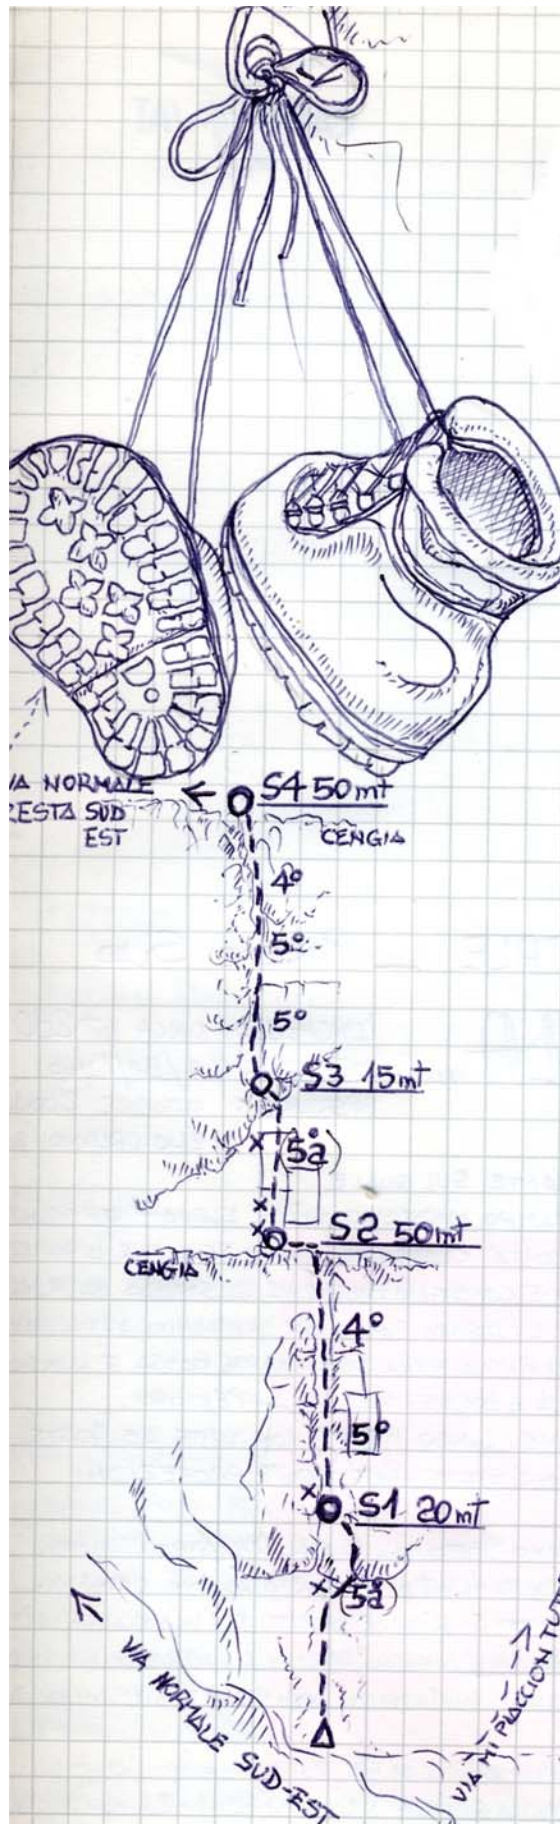 VIA NORMALE
CRESTA SUD
EST
S4 50mt
CENGIA
4°
5°
5°
S3 15mt
(5a)
S2 50mt
CENGIA
4°
5°
S1 20mt
(5a)
VIA NORMALE SUD-EST
VIA MI PIACCION TUTE